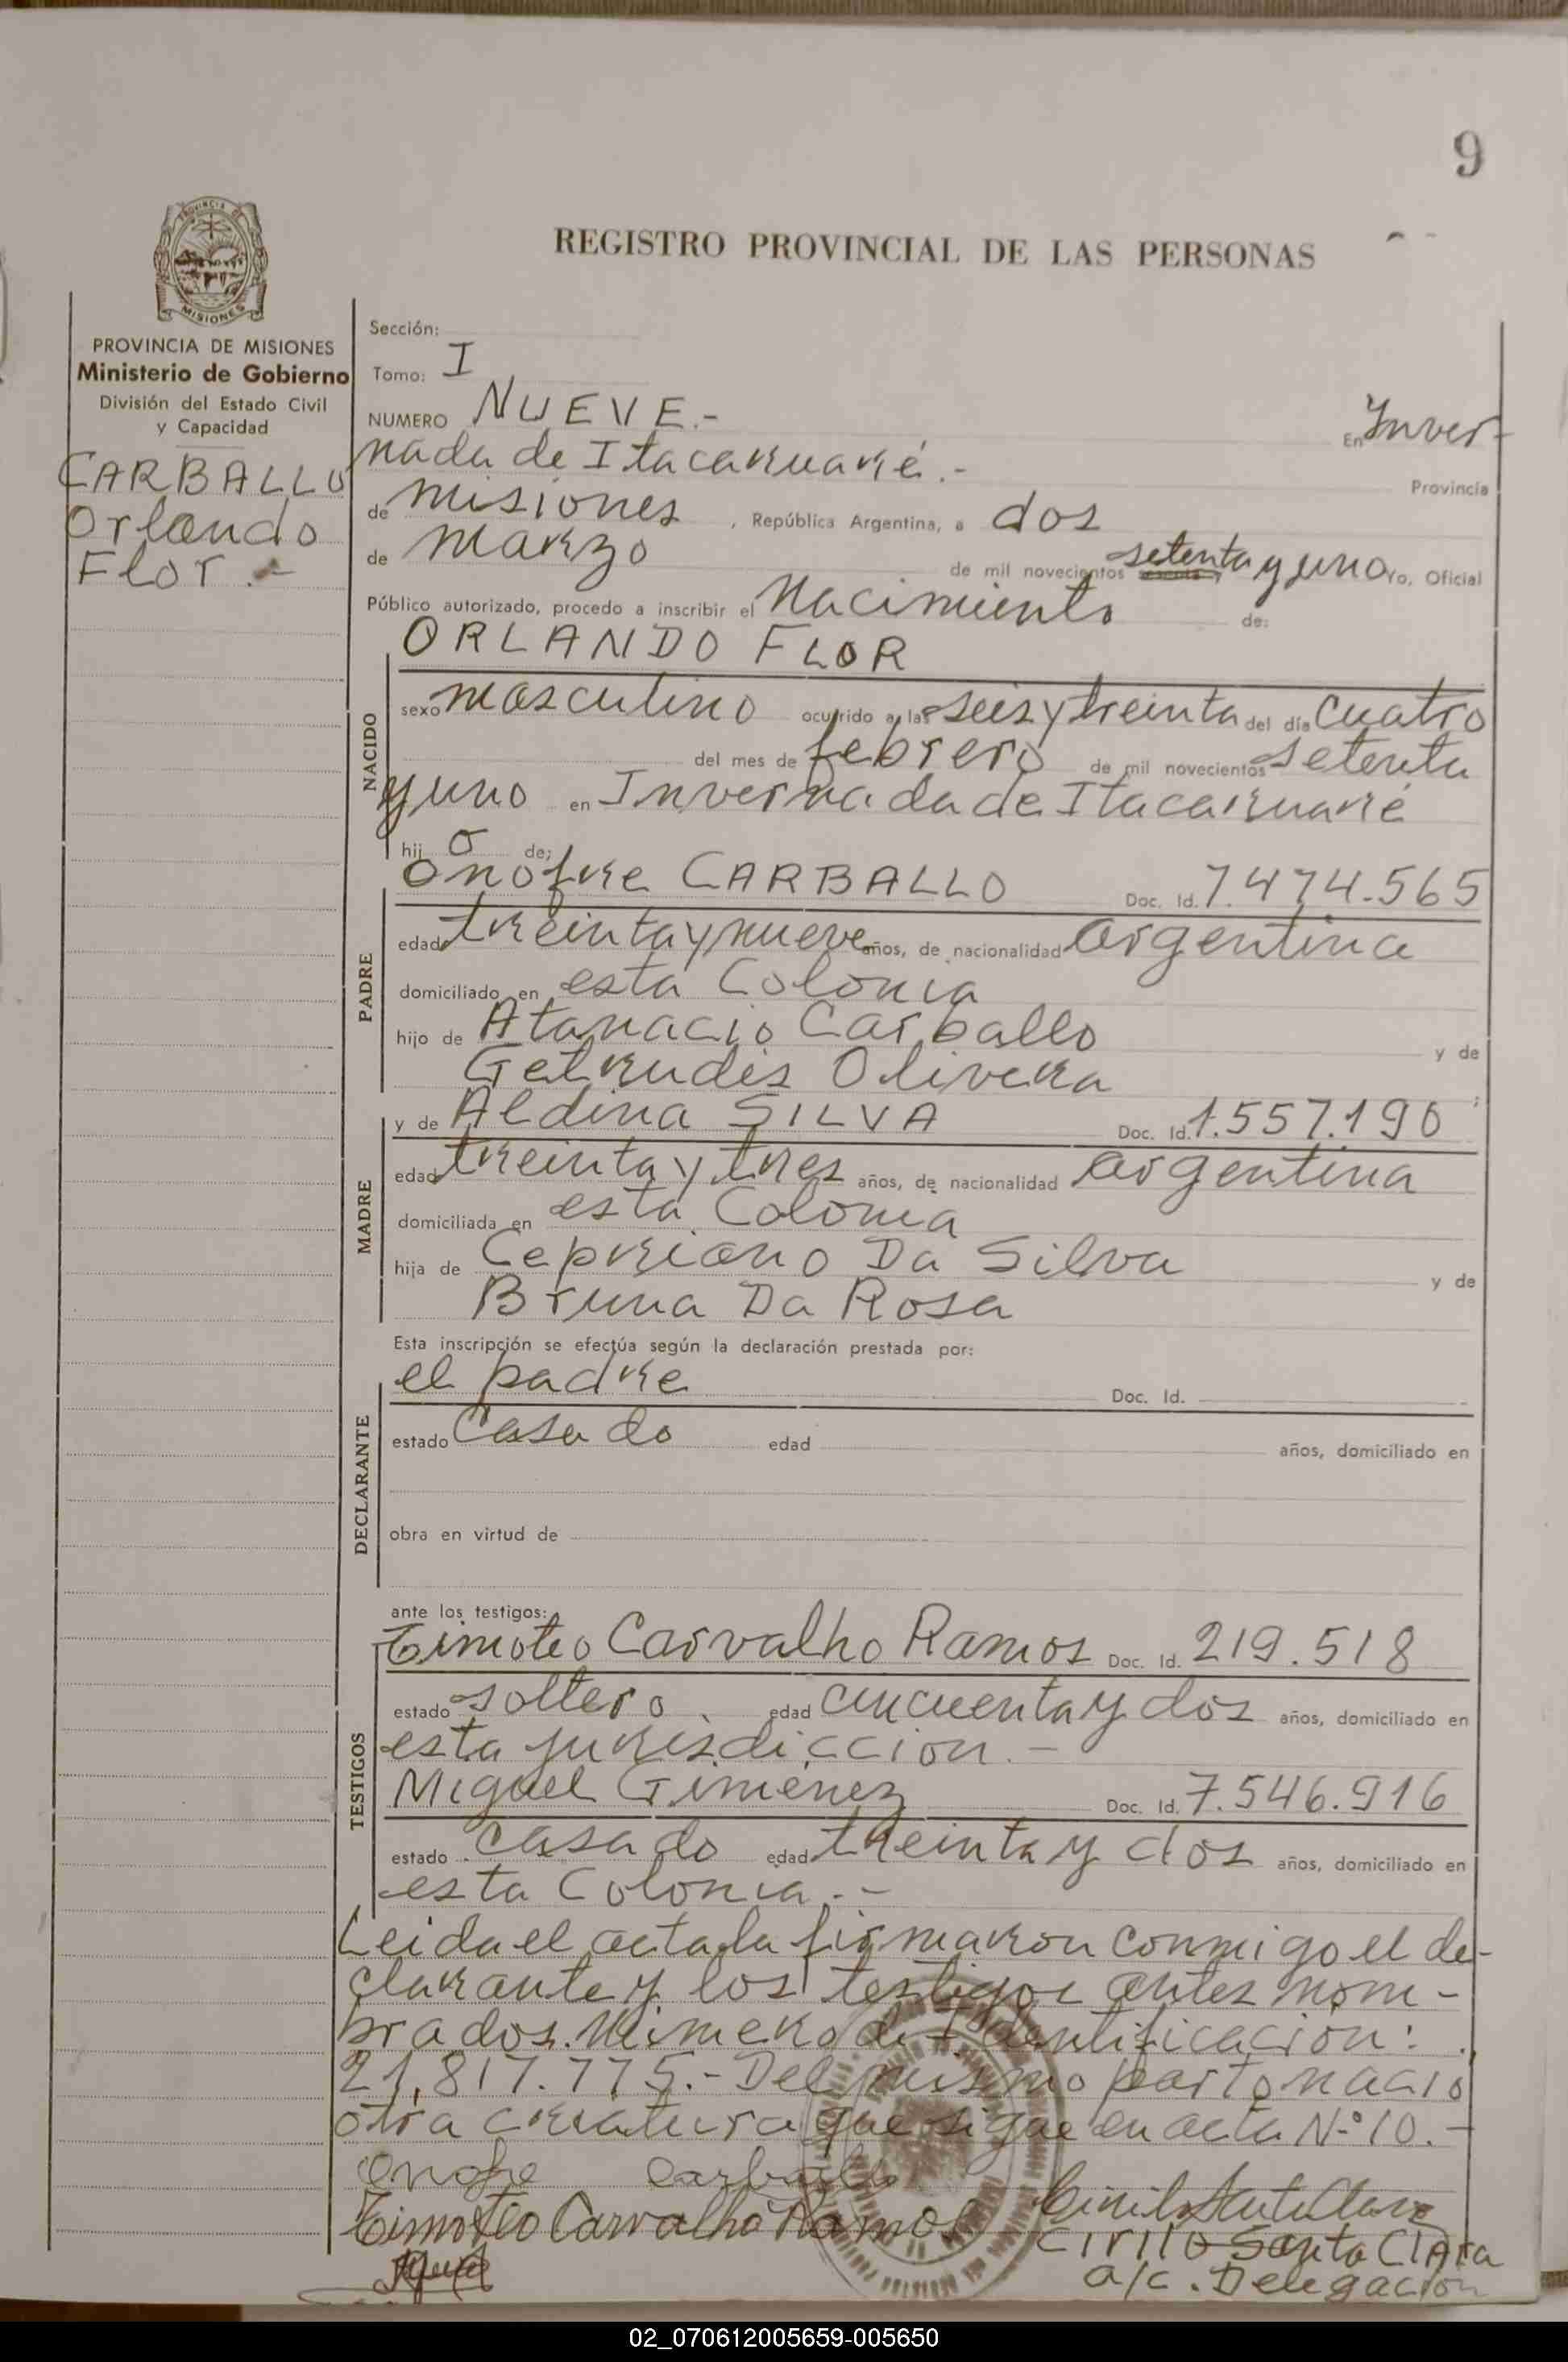 9
REGISTRO PROVINCIAL DE LAS PERSONAS
PROVINCIA DE
MISIONES
PROVINCIA DE MISIONES
Ministerio de Gobierno
División del Estado Civil
y Capacidad
CARBALLO
Orlando
Flor.-
Sección:
Tomo: I
NUMERO NUEVE.- En Inver-
nada de Itacaruaré.- Provincia
de Misiones, República Argentina, a dos
de Marzo de mil novecientos setenta y uno Yo, Oficial
Público autorizado, procedo a inscribir el Nacimiento de:
ORLANDO FLOR
NACIDO
sexo masculino ocurrido a las seis y treinta del día cuatro
del mes de febrero de mil novecientos setenta
y uno en Invernada de Itacaruaré
hij o de;
Onofre CARBALLO Doc. Id. 7.474.565
PADRE
edad treinta y nueve años, de nacionalidad argentina
domiciliado en esta Colonia
hijo de Atanacio Carballo y de
Getrudis Olivera
MADRE
y de Aldina SILVA Doc. Id. 1.557.190
edad treinta y tres años, de nacionalidad argentina
domiciliada en esta Colonia
hija de Cepriano Da Silva y de
Bruna Da Rosa
Esta inscripción se efectúa según la declaración prestada por:
DECLARANTE
el padre Doc. Id.
estado Casado edad años, domiciliado en
obra en virtud de
ante los testigos:
TESTIGOS
Timoteo Carvalho Ramos Doc. Id. 219.518
estado soltero. edad cincuenta y dos años, domiciliado en
esta jurisdiccion.-
Miguel Gimenez Doc. Id. 7.546.916
estado casado edad treinta y dos años, domiciliado en
esta Colonia.-
Leida el acta la firmaron conmigo el de-
clarante y los testigos antes nom-
brados. Número de Identificación:
21.817.775.- Del mismo parto nacio
otra criatura que sigue en acta Nº 10.-
Onofre Carballo
Timoteo Carvalho Ramos
Cirilo Santa Clara
a/c. Delegación
02_070612005659-005650